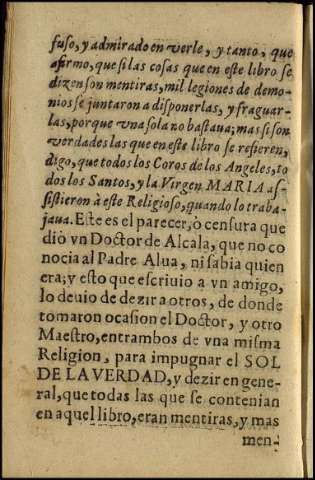 fuso, y admirado en verle, y tanto, que
afirmo, que si las cosas que en este libro se
dizen son mentiras, mil legiones de demo-
nios se juntaron a disponerlas, y fraguar-
las, porque vna sola no bastaua; mas si son
verdades las que en este libro se refieren,
digo, que todos los Coros de los Angeles, to
dos los Santos, y la Virgen MARIA as-
sistieron à este Religioso, quando lo traba-
jaua. Este es el parecer, ò censura que
diò vn Doctor de Alcala, que no co
nocia al Padre Alua, ni sabia quien
era; y esto que escriuio a vn amigo,
lo deuio de dezir a otros, de donde
tomaron ocasion el Doctor, y otro
Maestro, entrambos de vna misma
Religion, para impugnar el SOL
DE LA VERDAD, y dezir en gene-
ral, que todas las que se contenian
en aquel libro, eran mentiras, y mas
men-